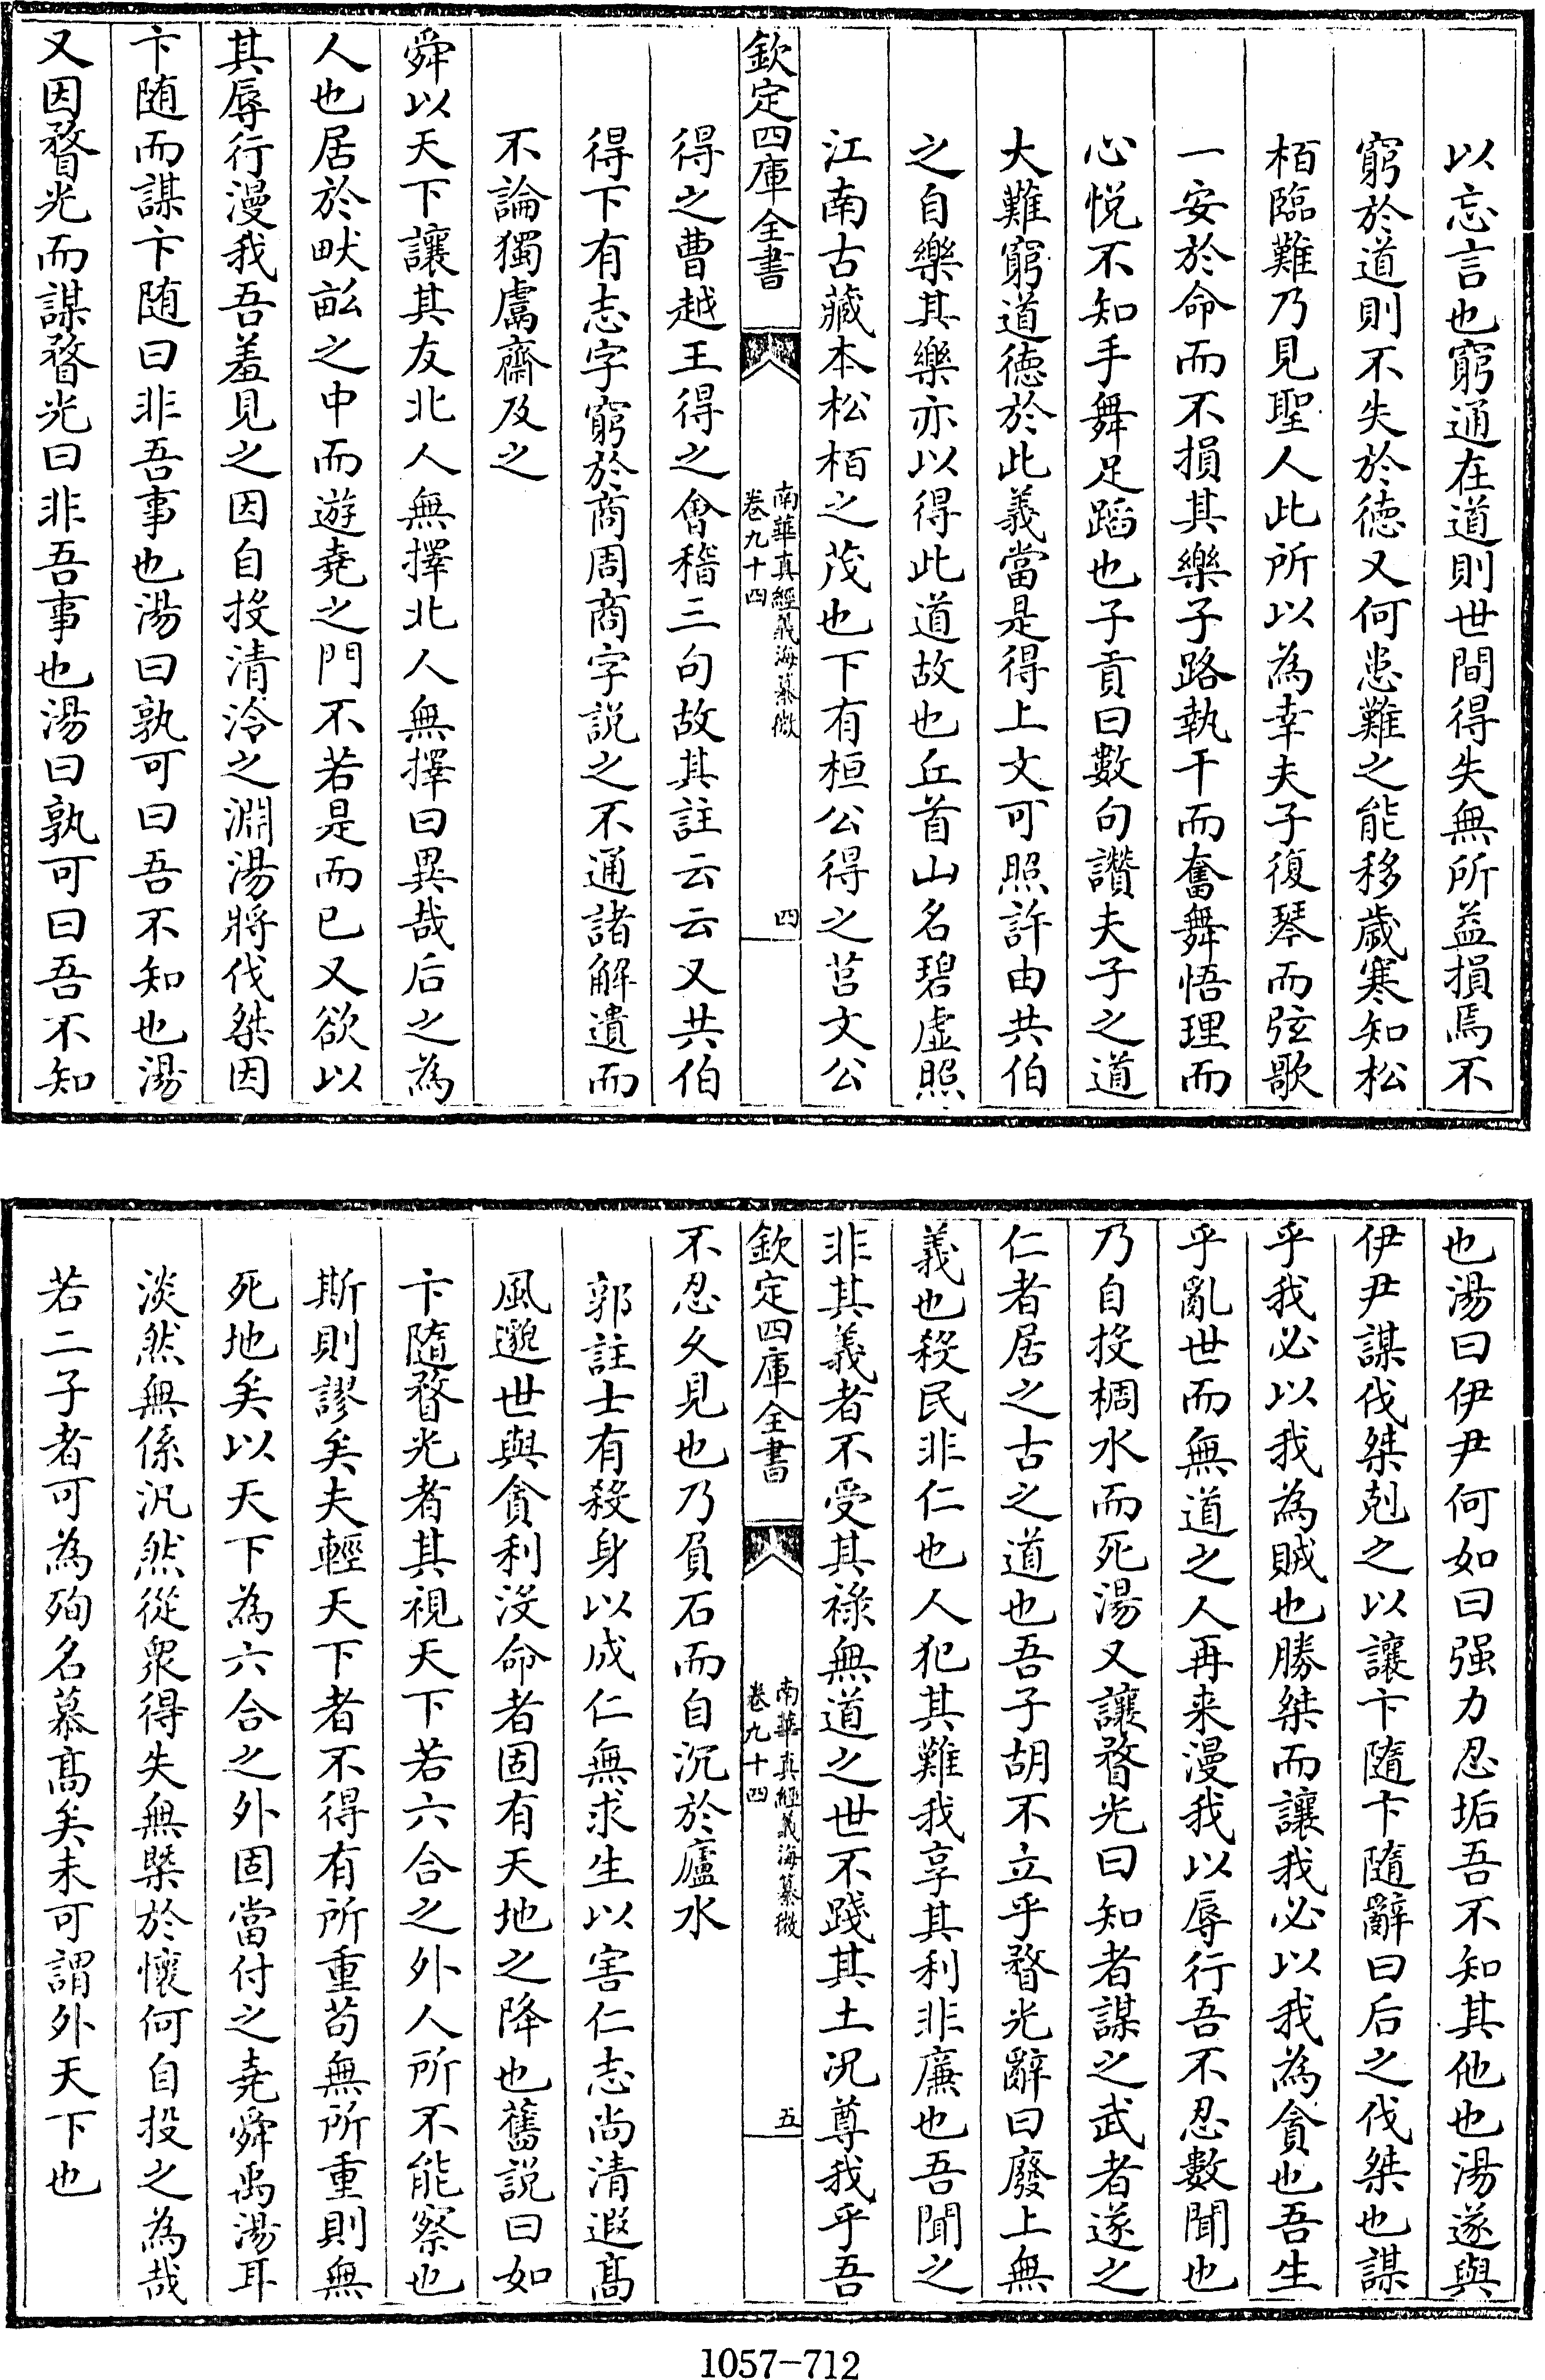 以忘言也窮通在道則世間得失無所益損焉不
窮於道則不失於徳又何患難之能移歲寒知松
栢臨難乃見聖人此所以為幸夫子復琴而弦歌
一安於命而不損其樂子路執干而奮舞悟理而
心悦不知手舞足蹈也子貢曰數句讚夫子之道
大難窮道徳於此義當是得上文可照許由共伯
之自樂其樂亦以得此道故也丘首山名碧虛照
江南古藏本松栢之茂也下有桓公得之莒文公
欽定四庫全書
南華真經義海纂微
卷九十四
四
得之曹越王得之會稽三句故其註云云又共伯
得下有志字窮於商周商字説之不通諸解遺而
不論獨鬳齋及之
舜以天下讓其友北人無擇北人無擇曰異哉后之為
人也居於畎畝之中而遊堯之門不若是而已又欲以
其辱行漫我吾羞見之因自投清泠之淵湯將伐桀因
卞随而謀卞随曰非吾事也湯曰孰可曰吾不知也湯
又因瞀光而謀瞀光曰非吾事也湯曰孰可曰吾不知
也湯曰伊尹何如曰强力忍垢吾不知其他也湯遂與
伊尹謀伐桀剋之以讓卞隨卞隨辭曰后之伐桀也謀
乎我必以我為賊也勝桀而讓我必以我為貪也吾生
乎亂世而無道之人再来漫我以辱行吾不忍數聞也
乃自投椆水而死湯又讓瞀光曰知者謀之武者遂之
仁者居之古之道也吾子胡不立乎瞀光辭曰廢上無
義也殺民非仁也人犯其難我享其利非廉也吾聞之
非其義者不受其祿無道之世不踐其土况尊我乎吾
欽定四庫全書
南華真經義海纂微
卷九十四
五
不忍久見也乃負石而自沉於廬水
郭註士有殺身以成仁無求生以害仁志尚清遐髙
風邈世與貪利没命者固有天地之降也舊説曰如
卞隨瞀光者其視天下若六合之外人所不能察也
斯則謬矣夫輕天下者不得有所重茍無所重則無
死地矣以天下為六合之外固當付之堯舜禹湯耳
淡然無係汎然從衆得失無槩於懷何自投之為哉
若二子者可為殉名慕髙矣未可謂外天下也
1057-712